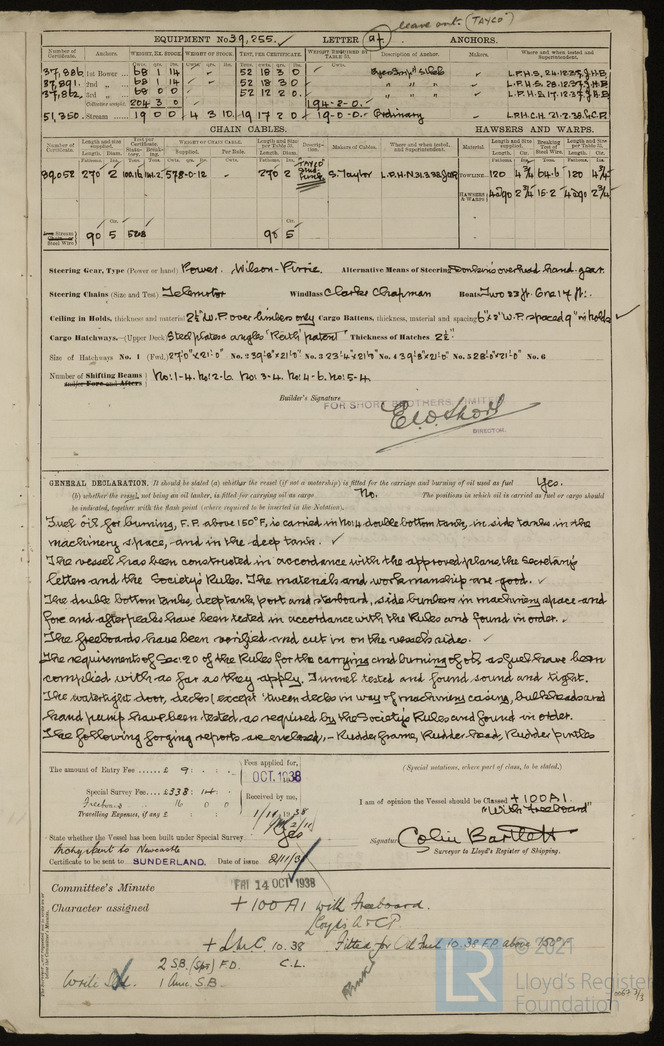 leave out. (TAYCO)
EQUIPMENT No 39,255. LETTER (at) ANCHORS.
Number of Certificate. Anchors. WEIGHT, EX. STOCK. WEIGHT OF STOCK. TEST, PER CERTIFICATE. WEIGHT REQUIRED BY TABLE 53. Description of Anchor. Makers. Where and when tested and Superintendent.
37,886 1st Bower 68 1 14 52 18 3 0 L.P.H.S. 24.12.37 J.H.B.
37,891 2nd " 68 1 14 52 18 3 0 " " " L.P.H.S. 28.12.37 J.H.B.
37,862 3rd " 68 0 0 52 12 2 0 " " " L.P.H.S. 17.12.37 J.H.B.
Collective weight 204 3 0 194-2-0.
51,350 Stream 19 0 0 4 3 10 19 17 2 0 19-0-0. Ordinary L.P.H.C.H. 21.2.38
CHAIN CABLES. HAWSERS AND WARPS.
Number of Certificate. Length and size supplied. Test per Certificate. WEIGHT OF CHAIN CABLE. Length and size per Table 53. Description. Makers of Cables. Where and when tested, and Superintendent. Material Length and size supplied. Breaking Test of Steel Wire. Length and size per Table 53.
Supplied. Per Rule.
39,052 270 2 578-0-12 270 2 TAYCO S. Taylor L.P.H.N. 31.3.38 TOWLINE 120 4 3/4 64.6 120 4 3/4
HAWSERS & WARPS 4@90 2 3/4 15.2 4@90 2 3/4
Stream Chain or Steel Wire 90 5 90 5
Steering Gear, Type (Power or hand) Power. Wilson-Pirrie. Alternative Means of Steering Donkin's overhead hand gear.
Steering Chains (Size and Test) Telemotor Windlass Clarke Chapman Boats Two 23 ft. One 17 ft.
Ceiling in Holds, thickness and material 2½" W.P. over limbers only Cargo Battens, thickness, material and spacing 6"x2" W.P. spaced 9" in holds
Cargo Hatchways.—(Upper Deck) Steel plates angles "Rath" patent Thickness of Hatches 2½"
Size of Hatchways No. 1 (Fwd.) 27'0"x21'0" No. 2 39'8"x21'0" No. 3 23'4"x21'0" No. 4 39'8"x21'0" No. 5 28'0"x21'0" No. 6
Number of Shifting Beams and/or Fore and Afters No: 1-4. No: 2-6. No: 3-4. No: 4-6. No: 5-4.
Builder's Signature
FOR SHORT BROTHERS, LIMITED
DIRECTOR.
GENERAL DECLARATION. It should be stated (a) whether the vessel (if not a motorship) is fitted for the carriage and burning of oil used as fuel Yes.
(b) whether the vessel, not being an oil tanker, is fitted for carrying oil as cargo No. The positions in which oil is carried as fuel or cargo should
be indicated, together with the flash point (where required to be inserted in the Notation).
Fuel oil for burning, F.P. above 150°F, is carried in No: 4 double bottom tank, in side tanks in the
machinery space, and in the deep tank.
The vessel has been constructed in accordance with the approved plans, the Secretary's
letters and the Society's Rules. The materials and workmanship are good.
The double bottom tanks, deep tank, port and starboard, side bunkers in machinery space and
fore and after peaks have been tested in accordance with the Rules and found in order.
The freeboards have been verified and cut in on the vessel's sides.
The requirements of Sec: 20 of the Rules for the carrying and burning of oil as fuel have been
complied with as far as they apply. Tunnel tested and found sound and tight.
The watertight door, decks (except 'tween decks in way of machinery casing, bulkheads and
hand pump have been tested, as required by the Society's Rules and found in order.
The following forging reports are enclosed, - Rudder frame, Rudder head, Rudder pintles
The amount of Entry Fee ...... £ 9 : : Fees applied for, (Special notations, where part of class, to be stated.)
OCT. 1938
Special Survey Fee £338 : 14 : Received by me,
Freeboard 16 0 0 I am of opinion the Vessel should be Classed +100A1.
Travelling Expenses, if any £ "With freeboard"
State whether the Vessel has been built under Special Survey. Yes Signature Colin Bartlett
Surveyor to Lloyd's Register of Shipping.
Certificate to be sent to SUNDERLAND. Date of issue 2/11/38
Committee's Minute FRI 14 OCT 1938
Character assigned +100A1 with Freeboard.
Lloyd's A & CP
+ LMC 10.38 Fitted for Oil Fuel 10.38 F.P. above 150°F.
2 S.B. (Spt) F.D. C.L.
1 Aux. S.B.
© 2021
LR Lloyd's Register
Foundation